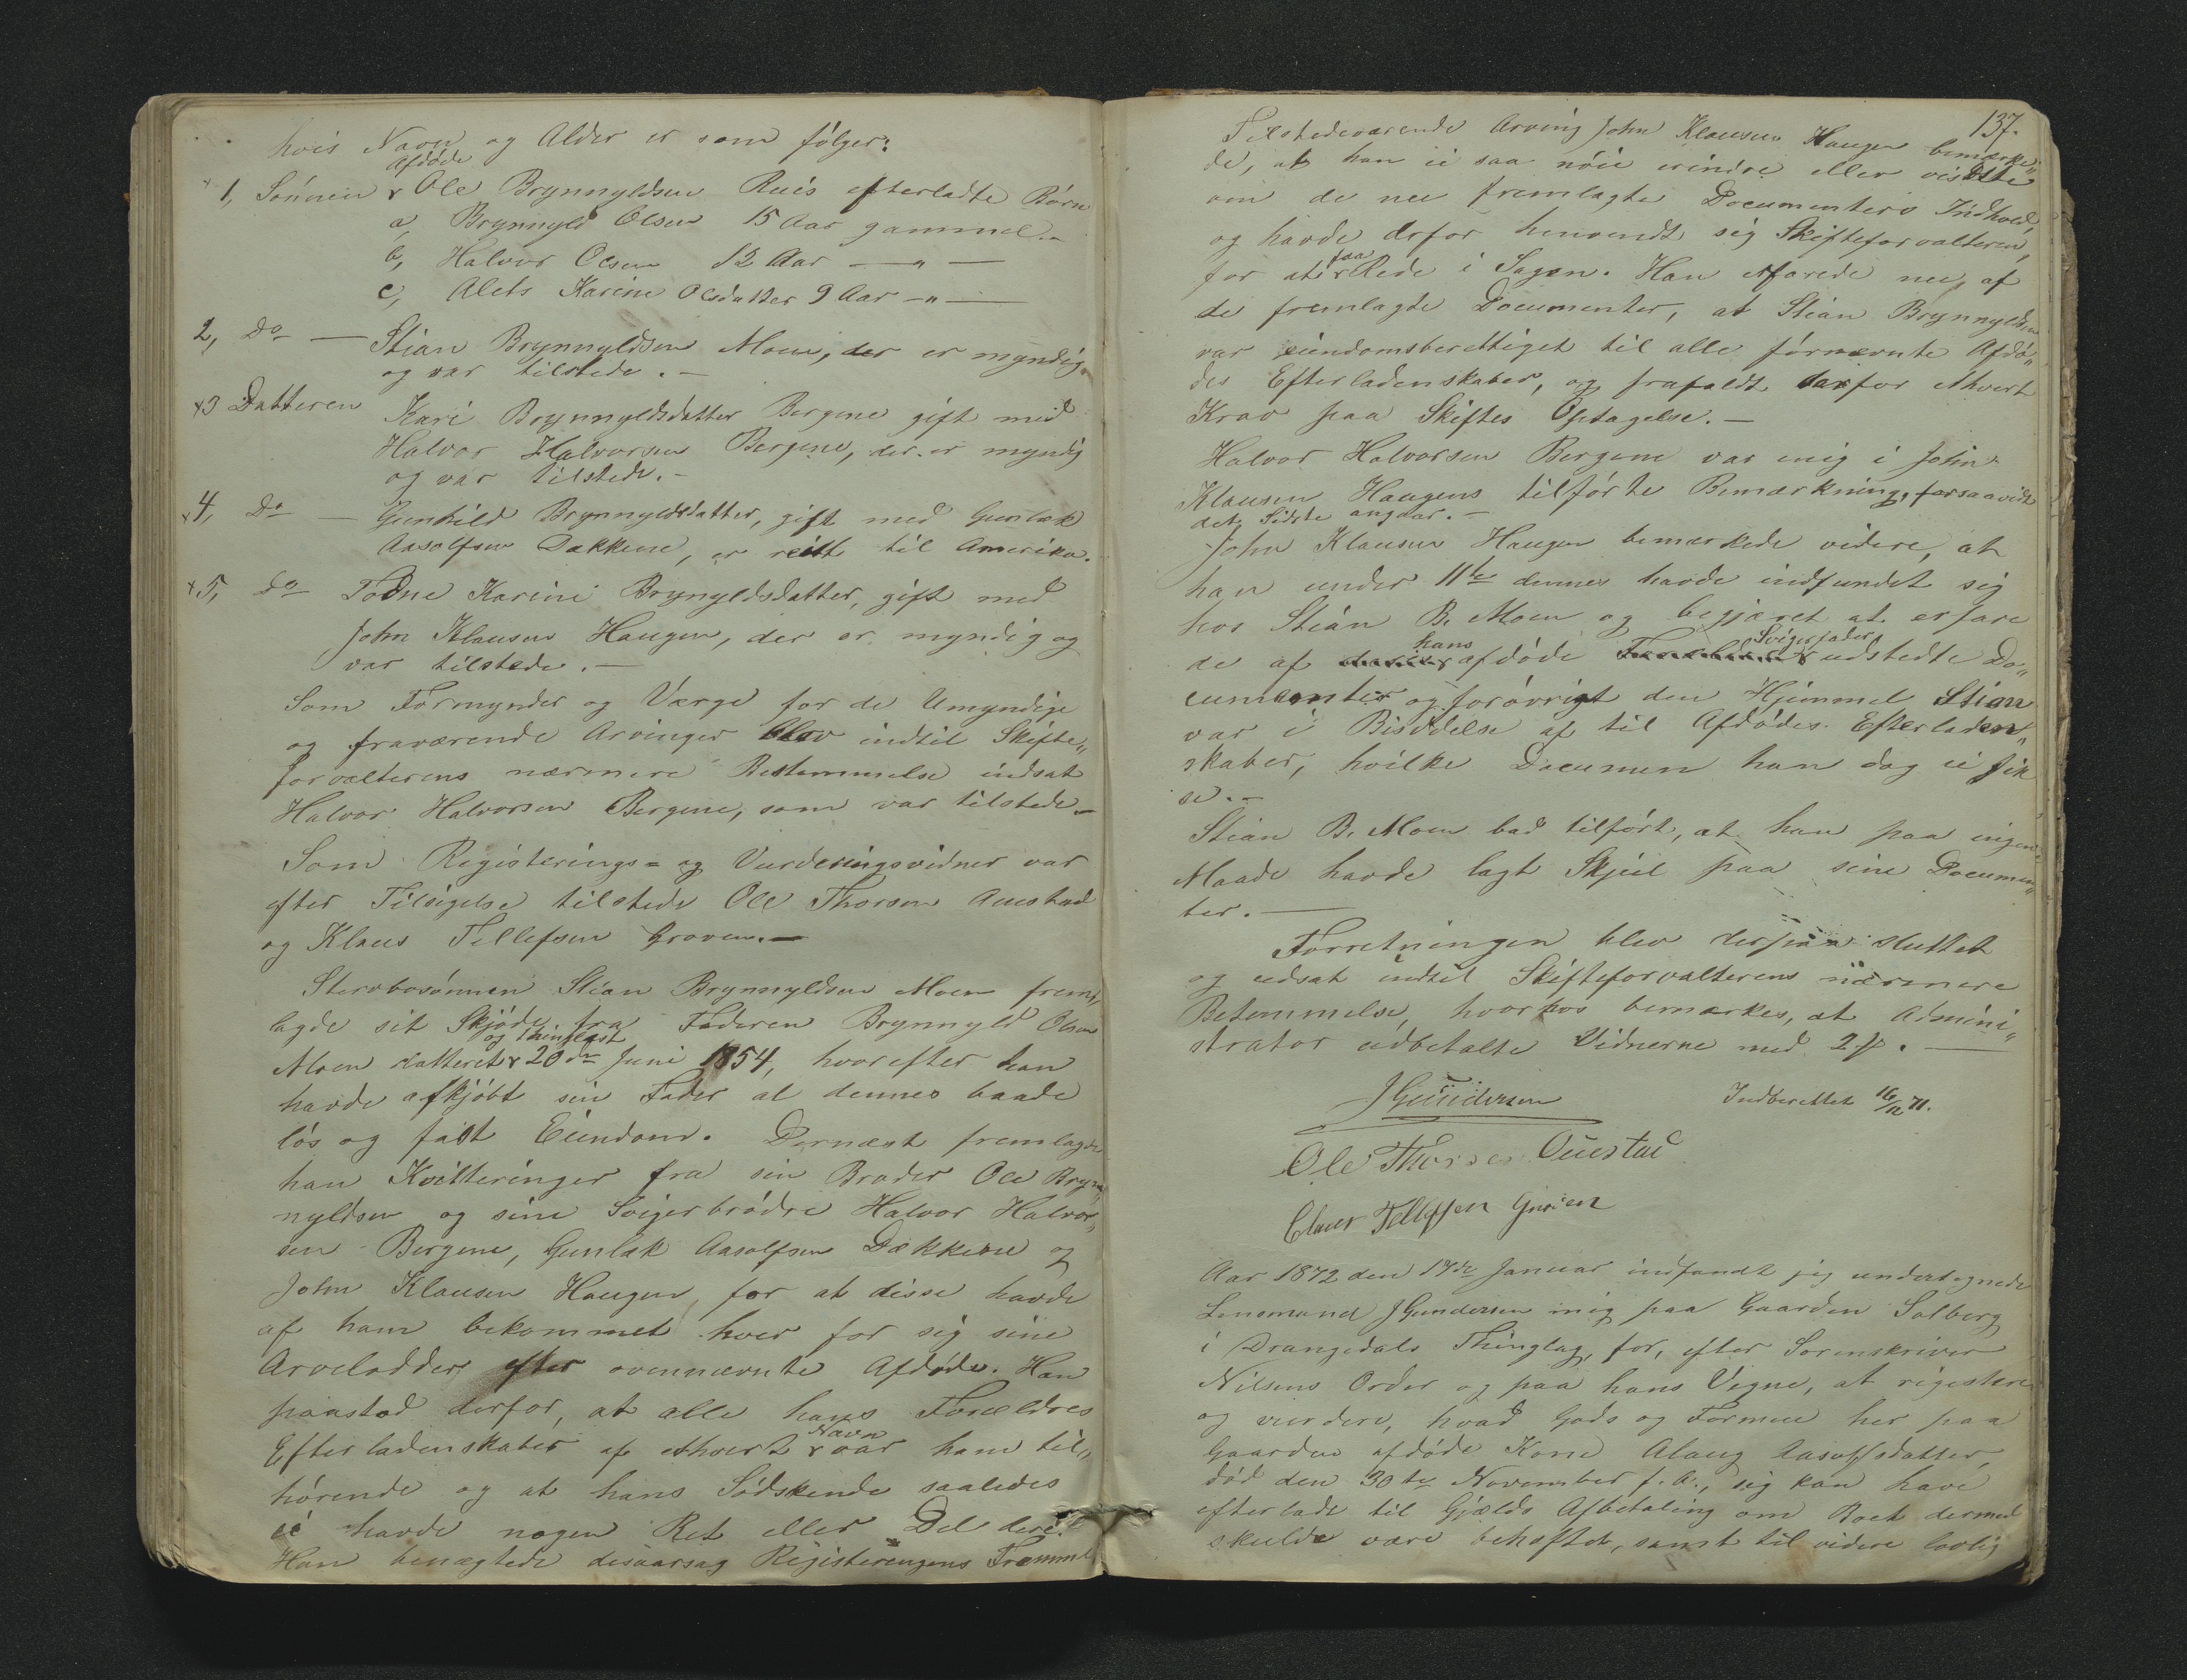 hvis Navn og Alder er som følger:
1, Sønnen afdøde Ole Brynnyldsen Ruis efterladte Børn
a, Brynnyld Olsen 15 Aar gammel.-
b, Halvor Olsen 12 Aar — " —
c, Alets Karine Olsdatter 9 Aar — " —
2, Do — Stian Brynnyldsen Moen, der er myndig
og var tilstede. —
x3 Datteren Kari Brynnyldsdatter Bergene gift med
Halvor Halvorsen Bergene, der er myndig
og var tilstede. -
x4, Do — Gunhild Brynnyldsdatter, gift med Gunlak
Aasolfsen Dækkene, er reist til Amerika.
x5, Do Todne Karine Brynyldsdatter, gift med
John Klausen Haugen, der er myndig og
var tilstede. —
Som Formynder og Værge for de Umyndige
og fraværende Arvinger blev indtil Skifte„
forvalterens nærmere Bestemmelse indsat
Halvor Halvorsen Bergene, som var tilstede —
Som Registerings= og Vurderingsvidner var
efter Tilsigelse tilstede Ole Thorsen Auestad
og Klaus Tellefsen Groven. —
Stervbosønnen Stian Brynnyldsen Moen frem„
lagde sit Skjøde fra Faderen Brynnyld Olsen
Moen datteret og thinglæst 20de Juni 1854, hvorefter han
havde afkjøbt sin Fader al dennes baade
løs og fast Eiendom. Dernæst fremlagde
han Kvitteringer fra sin Broder Ole Bryn„
nyldsen og sine Svigerbrødre Halvor Halvor„
sen Bergene, Gunlak Aasolfsen Dækkene og
John Klausen Haugen, for at disse havde
af ham bekommet hver for sig sine
Arvelodder efter ovennævnte Afdøde. Han
paastod derfor, at alle hans Forældres
Efterladenskaber af ethvert Navn var ham til„
hørende og at hans Sødskende saaledes
ei havde nogen Ret eller Del deri.
Han benægtede desaarsag Registeringens Fremme
137.
Tilstedeværende Arving John Klausen Haugen bemærke„
de, at han ei saa nøie erindre eller vidste
om de nu fremlagte Documenters Indhold,
og havde derfor henvendt sig Skifteforvalteren,
for at faa Rede i Sagen. Han erfarede nu, af
de fremlagte Documenter, at Stian Brynnyldsen
var eiendomsberettiget til alle førnævnte Afdø„
des Efterladenskaber, og frafaldt derfor ethvert
Krav paa Skiftes Optagelse. —
Halvor Halvorsen Bergene var enig i John
Klausen Haugens tilførte Bemærkning, forsaavidt
det Sidste angaar. —
John Klausen Haugen bemærkede videre, at
han under 11te dennes havde indfundet sig
hos Stian B. Moen og begjæret at erfare
de af hans afdøde Svigerfader udstedte Do„
cumenter og forøvrigt den Hjemmel Stian
var i Besiddelse af til Afdødes Efterladen„
skaber, hvilke Documen han dog ei fik
se. —
Stian B. Moen bad tilført, at han paa ingen
Maade havde lagt Skjul paa sine Documen„
ter. —
Forretningen blev derpaa sluttet
og udsat indtil Skifteforvalterens nærmere
Betemmelse, hvorhos bemærkes, at Admini„
strator udbetalte Vidnerne med 2 —
JGundersen Indberettet 16/12 71.
Ole Thorsen Ouestad
Claus Tellefsen
Aar 1872 den 17de Januar indfandt jeg undertegnede
Lensmand JGundersen mig paa Gaarden Solberg
i Drangedals Thinglag, for, efter Sorenskriver
Nilsens Order og paa hans Vegne, at registere
og vurdere, hvad Gods og Formue her paa
Gaarden afdøde Kone Alaug Aasolfsdatter,
død den 30te November f. A., sig kan have
efterladt til Gjælds Afbetaling om Boet dermed
skulde være behæftet, samt til videre lovlig